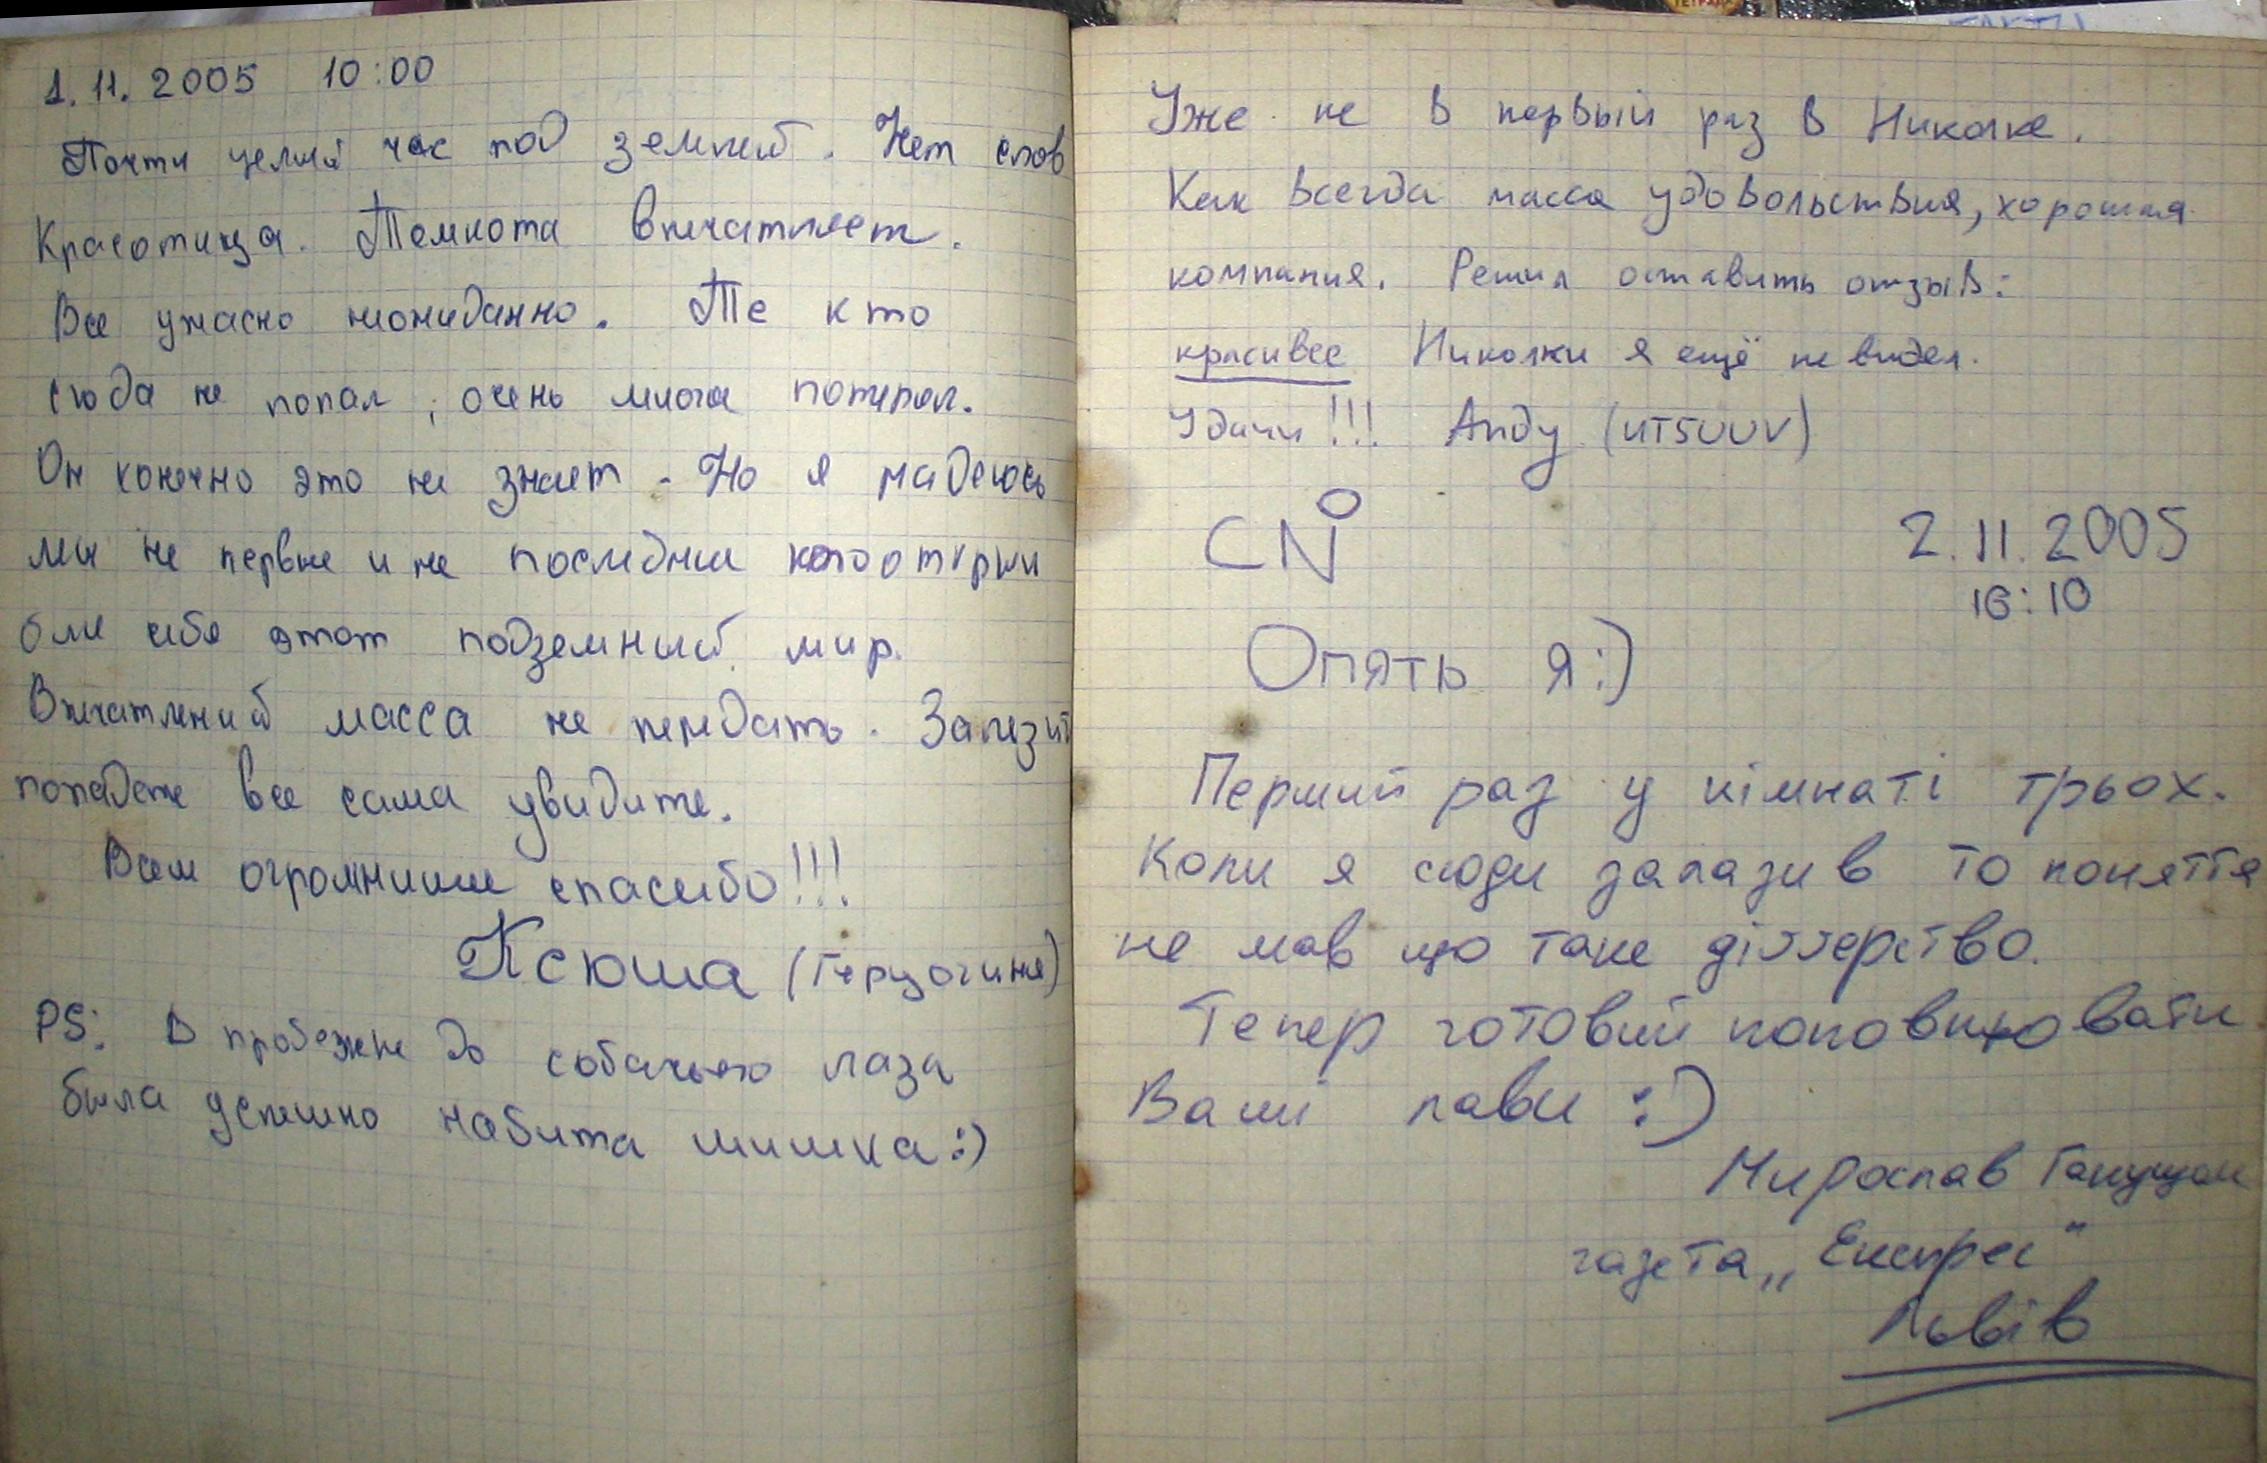 1.11.2005 10:00
Почти целый час под землей. Нет слов
Красотища. Темнота впечатляет.
Все ужасно неожиданно. Те кто
сюда не попал, очень много потерял.
Он конечно это не знает. Но я надеюсь
мы не первые и не последние кто открыл
для себя этот подземный мир.
Впечатлений масса не передать. Залезит
попадете все сами увидите.
Всем огромнище спасибо!!!
Ксюша (Герцогиня)
PS: В пробежке до собачьего лаза
была успешно набита шишка:)
Уже не в первый раз в Николке.
Как всегда масса удовольствия, хорошая
компания. Решил оставить отзыв:
красивее Николки я ещё не видел.
Удачи!!! Andy (UT5UUV)
CN
2.11.2005
16:10
Опять я:)
Перший раз у кімнаті трьох.
Коли я сюди залазив то поняття
не мав що таке діггерство.
Тепер готовий поповнювати
Ваші лави :)
Мирослав
газета „Експрес"
Львів